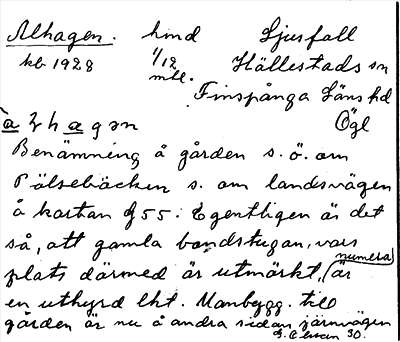 Alhagen. hmd Ljusfall
kb 1928 1/12 Hällestads sn
mtl. Finspånga läns hd
a̲ l h a̲ g ə n Ögl
Benämning å gården s. ö. om
Pölsebäcken s. om landsvägen
å kartan 55. Egentligen är det
så, att gamla bondstugan, vars
plats därmed är utmärkt, numera är
en uthyrd lht. Manbygg. till
gården är nu å andra sidan järnvägen
30.